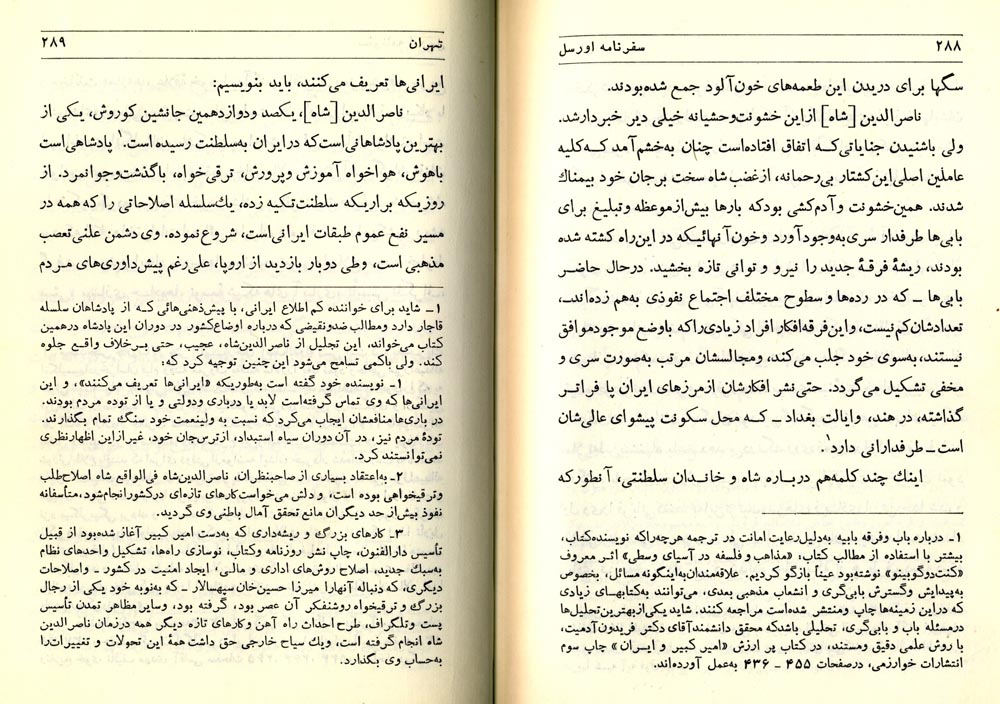 ۲۸۸
سفرنامه اورسل
سگها برای دریدن این طعمه‌های خون‌آلود جمع شده‌بودند.
ناصرالدین [شاه] ازاین خشونت‌وحشیانه خیلی دیر خبردارشد.
ولی باشنیدن جنایاتی‌کـه اتفاق افتاده‌است چنان به‌خشم‌آمد کـه‌کلیه
عاملین اصلی‌این‌کشتار بی‌رحمانه، ازغضب شاه سخت برجان خود بیمناك
شدند. همین‌خشونت وآدم‌کشی بودکه بارها بیش‌ازموعظه وتبلیغ برای
بابی‌ها طرفدار سری‌به‌وجودآورد وخون‌آنهائیکه دراین‌راه کشته شده
بودند، ریشهٔ فرقهٔ جدید را نیرو و توانی تازه بخشید. درحال حاضر
بابی‌ها ــ که در رده‌ها وسطوح مختلف اجتماع نفوذی به‌هم زده‌انـد،
تعدادشان‌کم‌نیست، واین‌فرقه‌افکار افراد زیادی‌راکه باوضع موجودموافق
نیستند، به‌سوی خود جلب می‌کند، ومجالسشان مرتب به‌صورت سری و
مخفی تشکیل می‌گردد. حتی‌نشر افکارشان ازمرزهای ایران پا فراتـر
گذاشته، در هند، وایالت بغداد ــ کـه محل سکونت پیشوای عالی‌شان
است ــ طرفدارانی دارد۱.
اینك چند کلمه‌هم دربـاره شاه و خانـدان سلطنتی، آنطورکه
۱ــ درباره باب وفرقه بابیه به‌دلیل‌رعایت امانت در ترجمه هرچه‌راکه نویسنده‌کتاب،
بیشتر با استفاده از مطالب کتاب: «مذاهب و فلسفه در آسیای وسطی» اثـر معروف
«کنت‌دوگوبینو» نوشته‌بود عیناً بازگو کردیم. علاقه‌مندان‌به‌اینگونه مسائل، بخصوص
به‌پیدایش وگسترش بابی‌گری و انشعاب مذهبی بعدی، می‌توانند به‌کتابهـای زیادی
که دراین زمینه‌ها چاپ ومنتشر شده‌است مراجعه کنند. شاید یکی‌ازبهترین‌تحلیل‌ها
درمسئله باب و بابی‌گری، تحلیلی باشدکه محقق دانشمندآقای دکتر فریدون‌آدمیت،
با روش علمی دقیق ومستند، در کتاب پر ارزش «امیر کبیر و ایـران» چاپ سوم
انتشارات خوارزمی، درصفحات ۴۵۵ ــ ۴۳۶ به‌عمل آورده‌اند.
تهران
۲۸۹
ایرانی‌ها تعریف می‌کنند، باید بنویسیم:
ناصرالدین [شاه]، یکصد ودوازدهمین جانشین کوروش، یکی از
بهترین پادشاهانی‌است‌که درایران به‌سلطنت رسیده است.۱ پادشاهی‌است
باهوش، هواخواه آموزش وپرورش، ترقی‌خواه، باگذشت‌وجوانمرد. از
روزیـکه براریـکه سلطنت‌تکیـه زده، یك‌سلسله اصلاحاتی را که‌همه در
مسیر نفع عموم طبقات ایرانی‌است، شروع‌نموده. وی دشمن علنی‌تعصب
مذهبی‌است، وطی دوبار بازدید از اروپا، علی‌رغم پیش‌داوری‌های مـردم
۱ــ شاید برای خواننده کم اطلاع ایرانی، با پیش‌ذهنی‌هائی کـه از پادشاهان سلسله
قاجار دارد ومطالب ضدونقیضی که‌درباره اوضاع‌کشور در دوران این پادشاه درهمین
کتاب می‌خواند، این تجلیل از ناصرالدین‌شاه، عجیب، حتی بـرخلاف واقـع جلوه
کند. ولی باکمی تسامح می‌شود این‌چنین توجیه کرد که:
۱ــ نویسنده خود گفته است به‌طوریکه «ایرانی‌ها تعریف می‌کنند»، و این
ایرانی‌ها که وی تماس گرفته‌است لابد یا درباری ودولتی و یا از توده مردم بودند.
در باری‌ها منافعشان ایجاب می‌کرد که نسبت به ولینعمت خود سنگ تمام بگذارند.
تودهٔ مردم نیز، در آن دوران سیاه استبداد، ازترس‌جان خود، غیرازاین اظهارنظری
نمی‌توانستند کرد.
۲ــ به‌اعتقاد بسیاری از صاحبنظران، ناصرالدین‌شاه فی‌الواقع شاه اصلاح‌طلب
وترقیخواهی بوده است، و دلش می‌خواست‌کارهای تازه‌ای درکشورانجام‌شود،متأسفانه
نفوذ بیش‌از حد دیگران مانع تحقق آمال باطنی وی گردید.
۳ــ کارهای بزرگ و ریشه‌داری که به‌دست امیر کبیر آغاز شده‌بود از قبیل
تأسیس دارالفنون، چاپ نشر روزنامه وکتاب، نوسازی راه‌ها، تشکیل واحدهای نظام
به‌سبك جدید، اصلاح روش‌های اداری و مالی، ایجاد امنیت در کشور ــ واصلاحات
دیگری، که‌دنباله آنهارا میرزا حسین‌خان سپهسالار ــ که به‌نوبه خود یکی از رجال
بزرگ و ترقیخواه روشنفکر آن عصر بود، گرفته بود، وسایر مظاهر تمدن تأسیس
پست وتلگراف، طرح احداث راه آهن وکارهای تازه دیگر همه درزمان ناصرالدین
شاه انجام گرفته است، ویك سیاح خارجی حق داشت همهٔ این تحولات و تغییرات‌را
به‌حساب وی بگذارد.